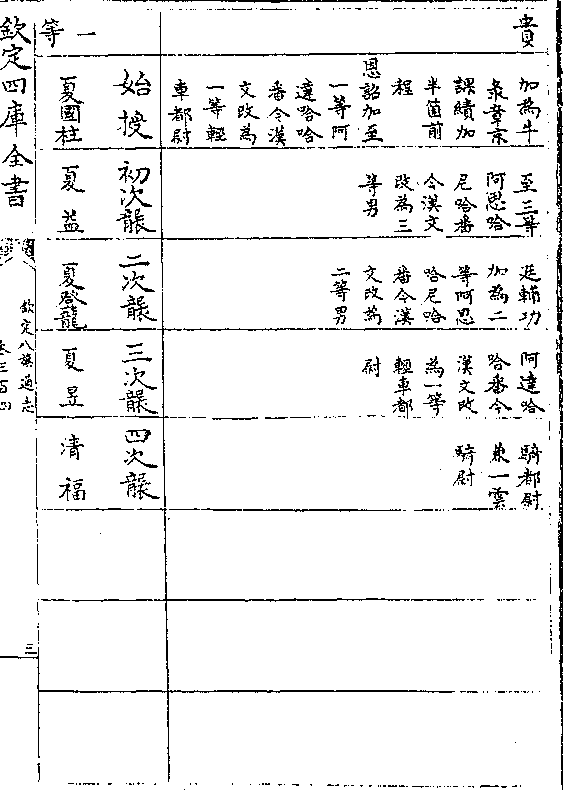 貴
一
等
加為牛
彔章京
課績加
半箇前
程
恩詔加至
一等阿
達哈哈
番今漢
文改為
一等輕
車都尉
始授
夏國柱
至三等
阿思哈
尼哈番
今漢文
改為三
等男
初次襲
夏益
廷輔功
加為二
等阿思
哈尼哈
番今漢
文改為
二等男
二次襲
夏登龍
阿達哈
哈番今
漢文改
為一等
輕車都
尉
三次襲
夏昱
騎都尉
兼一雲
騎尉
四次襲
清福
欽定四庫全書
欽定八旗通志
卷三百四
三